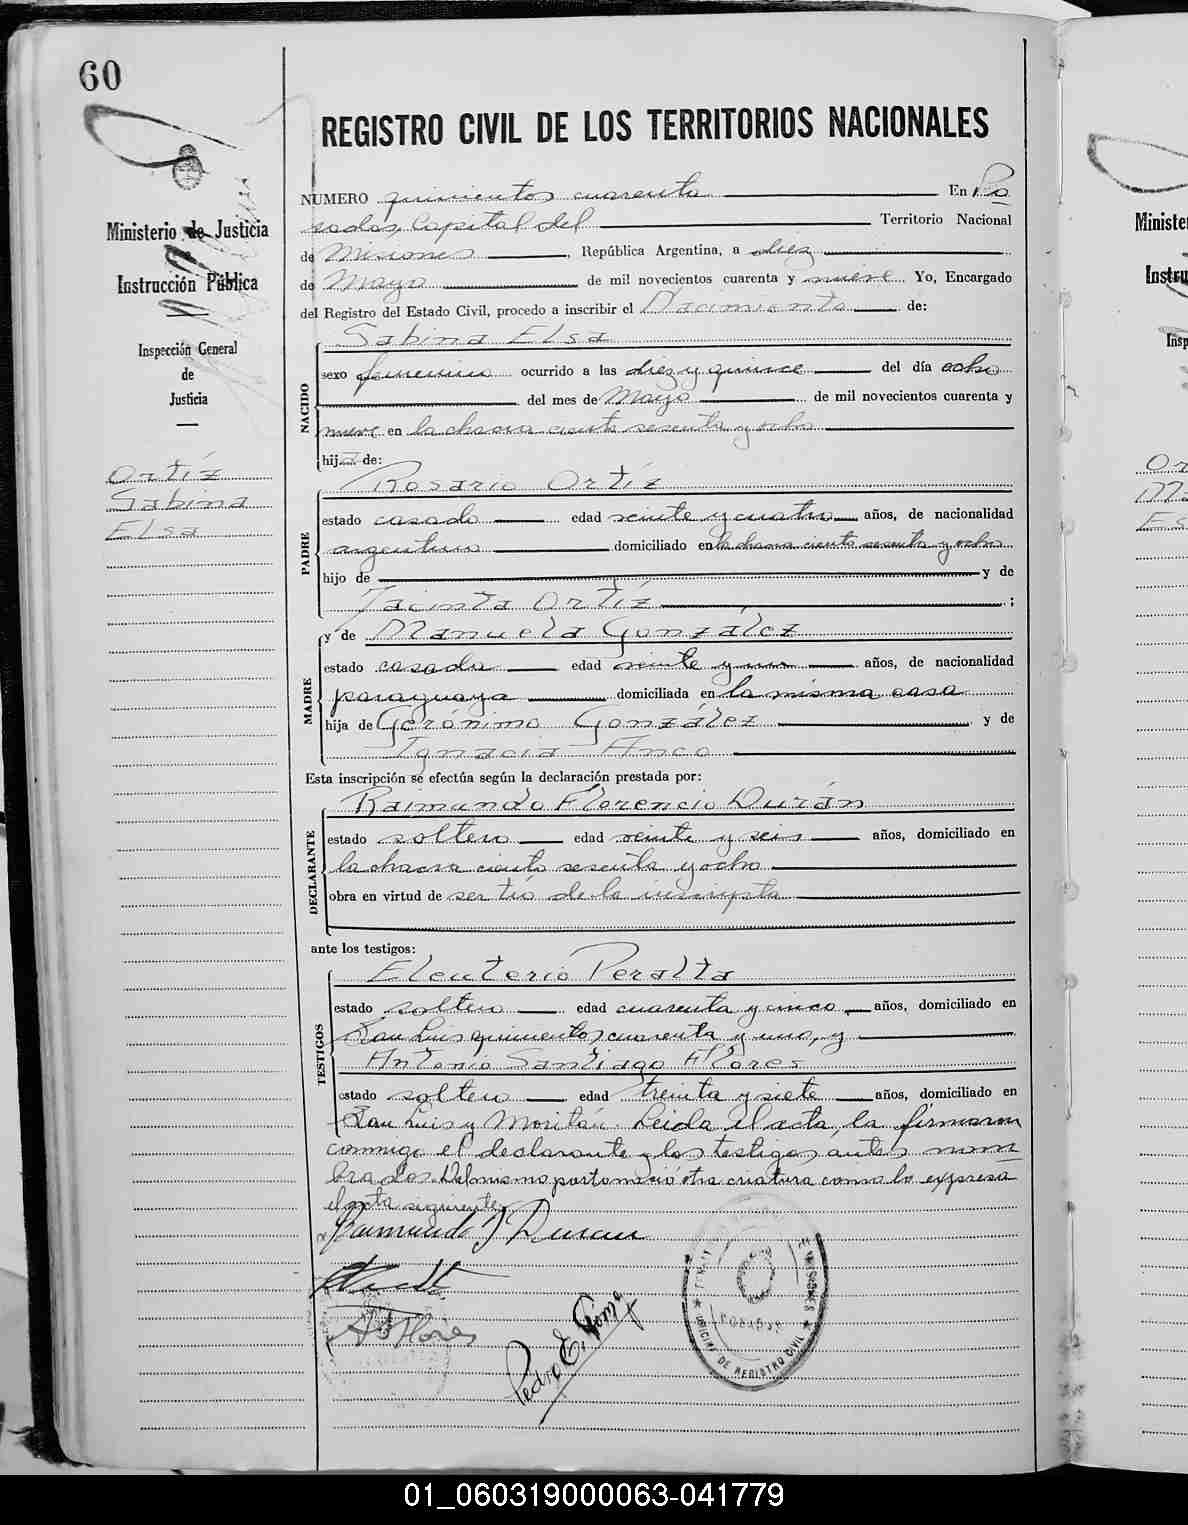 60
REGISTRO CIVIL DE LOS TERRITORIOS NACIONALES
Ministerio de Justicia
Instrucción Pública
Inspección General
de
Justicia
Ortíz
Sabina
Elsa
NUMERO quinientos cuarenta En Po
sadas, Capital del Territorio Nacional
de Misiones, República Argentina, a diez
de Mayo de mil novecientos cuarenta y nueve Yo, Encargado
del Registro del Estado Civil, procedo a inscribir el Nacimiento de:
NACIDO
Sabina Elsa
sexo femenino ocurrido a las diez y quince del día ocho
del mes de Mayo de mil novecientos cuarenta y
nueve en la chacra ciento sesenta y ocho
hija de:
PADRE
Rosario Ortíz
estado casado edad veinte y cuatro años, de nacionalidad
argentino domiciliado en la chacra ciento sesenta y ocho
hijo de y de
Jacinta Ortíz ;
MADRE
y de Manuela González
estado casada edad veinte y un años, de nacionalidad
paraguaya domiciliada en la misma casa
hija de Gerónimo González y de
Ignacia
Esta inscripción se efectúa según la declaración prestada por:
DECLARANTE
Raimundo Florencio Durán
estado soltero edad veinte y seis años, domiciliado en
la chacra ciento sesenta y ocho
obra en virtud de ser tío de la inscripta
ante los testigos:
TESTIGOS
Eleuterio Peralta
estado soltero edad cuarenta y cinco años, domiciliado en
San Luis quinientos cuarenta y uno, y
Antonio Santiago Flores
estado soltero edad treinta y siete años, domiciliado en
San Luis y Moritán. Leida el acta, la firmaron
conmigo el declarante y los testigos antes nom
brados. Del mismo parto nació otra criatura como lo expresa
el acta siguiente
Raimundo F Duran
A S Flores
Pedro E.
OFICINA DE REGISTRO CIVIL
MISIONES
POSADAS
Ministe
Instru
Insp
Or
Ma
Es
01_060319000063-041779